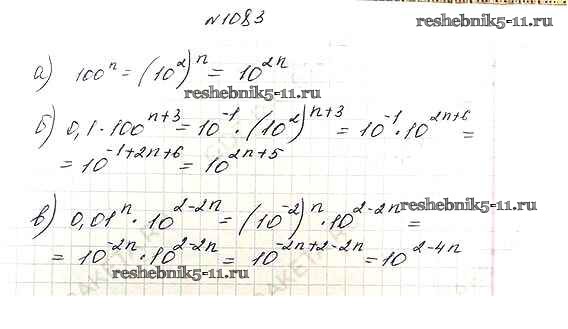 №1083
reshebnik5-11.ru
а) 100ⁿ = (10²)ⁿ = 10²ⁿ
reshebnik5-11.ru
б) 0,1·100ⁿ⁺³ = 10⁻¹·(10²)ⁿ⁺³ = 10⁻¹·10²ⁿ⁺⁶ =
= 10⁻¹⁺²ⁿ⁺⁶ = 10²ⁿ⁺⁵
в) 0,01ⁿ·10²⁻²ⁿ = (10⁻²)ⁿ·10²⁻²ⁿ =
reshebnik5-11.ru
= 10⁻²ⁿ·10²⁻²ⁿ = 10⁻²ⁿ⁺²⁻²ⁿ = 10²⁻⁴ⁿ
reshebnik5-11.ru